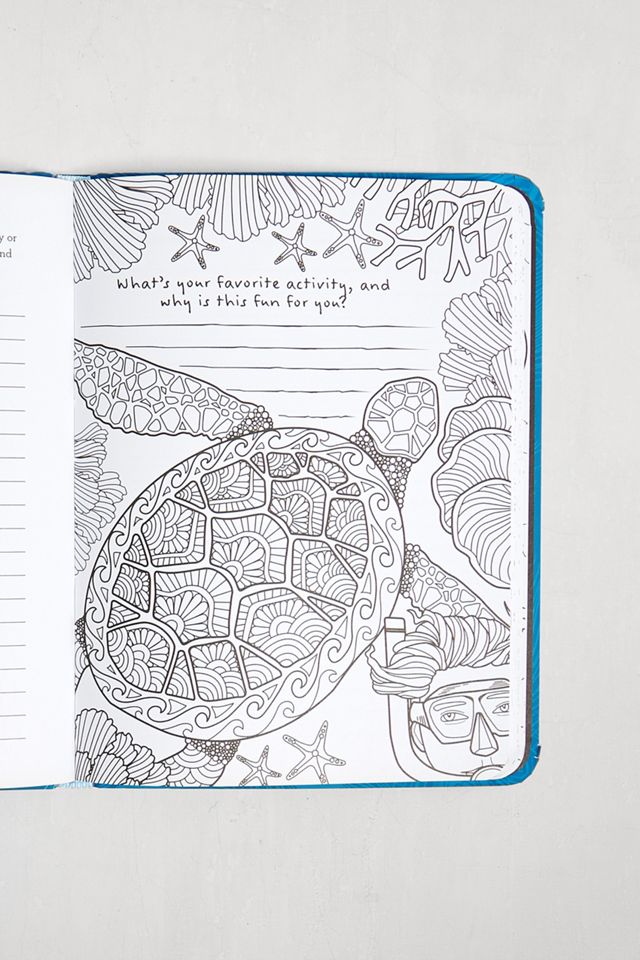 y or
nd
What's your favorite activity, and
why is this fun for you?